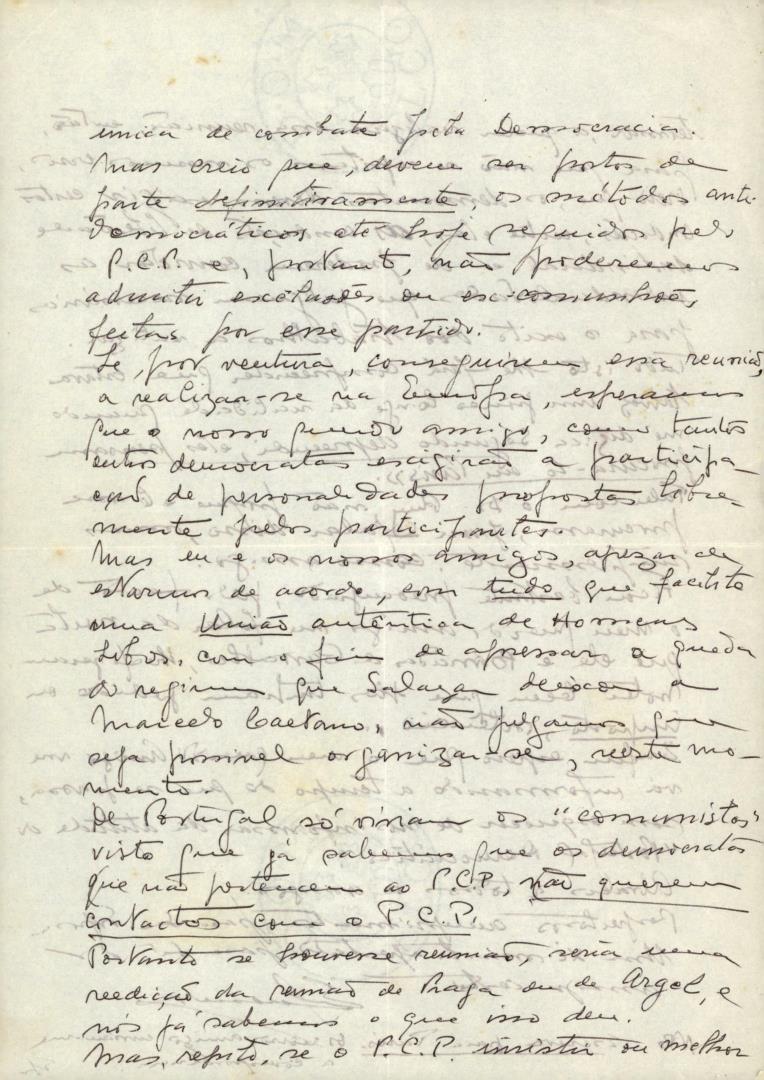 unica de combate pela Democracia.
Mas creio que, devem ser postos de
parte definitivamente, os métodos anti-
democráticos até hoje seguidos pelo
P.C.P. e, portanto, não poderemos
admitir exclusões ou ex-comunhões,
feitas por esse partido.
Se, por ventura, conseguirem essa reunião,
a realizar-se na Europa, esperamos
que o nosso querido amigo, como tantos
outros democratas exigirão a participa-
ção de personalidades propostas libre-
mente pelos participantes.
Mas eu e os nossos amigos, apezar de
estarmos de acordo, com tudo que facilite
uma União autêntica de Homens
Libres, com o fim de apressar a queda
do regimen que Salazar deixou a
Marcelo Caetano, não julgamos que
seja possivel organizar-se, neste mo-
mento.
De Portugal só viriam os "comunistas"
visto que já sabemos que os democratas
que não pertencem ao P.C.P, não querem
contactos com o P.C.P.
Portanto se houvesse reunião, seria uma
reedição da reunião de Praga ou de Argel, e
nós já sabemos o que isso deu.
Mas, repito, se o P.C.P. insistir ou melhor